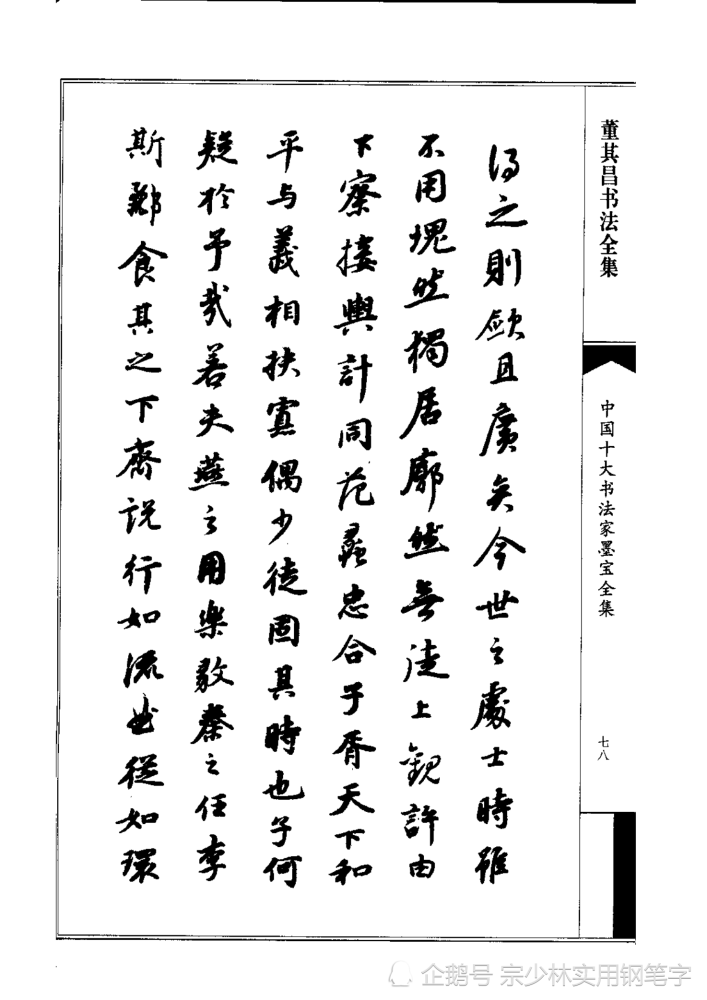 董其昌书法全集
中国十大书法家墨宝全集
七八
得之則歛且廣矣今世之處士時雖
不用塊然獨居廓然無徒上觀許由
下察接輿計同范蠡忠合子胥天下和
平与義相扶寡偶少徒固其時也子何
疑於予哉若夫燕之用樂毅秦之任李
斯酈食其之下齊說行如流曲從如環
企鹅号 宗少林实用钢笔字